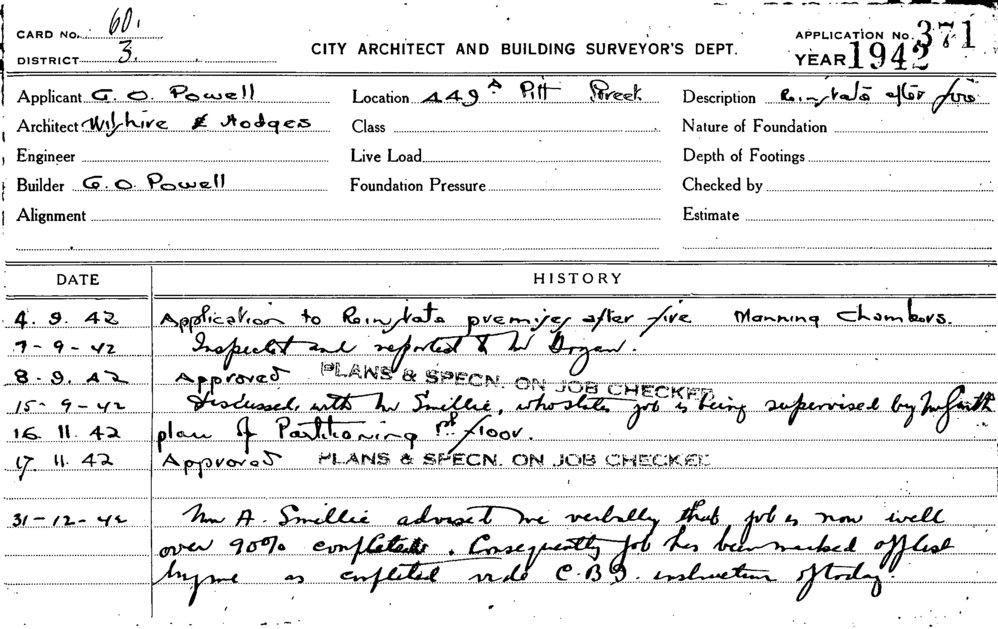 CARD No. 60.
DISTRICT 3.
CITY ARCHITECT AND BUILDING SURVEYOR'S DEPT.
APPLICATION No. 371
YEAR 1942
Applicant G. O. Powell Location 449A Pitt Street Description Reinstate after fire
Architect Wilshire & Hodges Class Nature of Foundation
Engineer Live Load Depth of Footings
Builder G. O. Powell Foundation Pressure Checked by
Alignment Estimate
DATE HISTORY
4. 9. 42 Application to Reinstate premises after fire Manning Chambers.
7-9-42 Inspected and reported to Mr
8. 9. 42 Approved PLANS & SPECN. ON JOB CHECKED
15-9-42 Discussed with Mr Smillie, who states job is being supervised by Mr Smith
16. 11. 42 plan of Partitioning 1st floor.
17. 11. 42 Approved PLANS & SPECN. ON JOB CHECKED
31-12-42 Mr A. Smillie advised me verbally that job is now well
over 90% completed. Consequently job has been marked off list
by me as completed vide C.B.S. instruction of today.